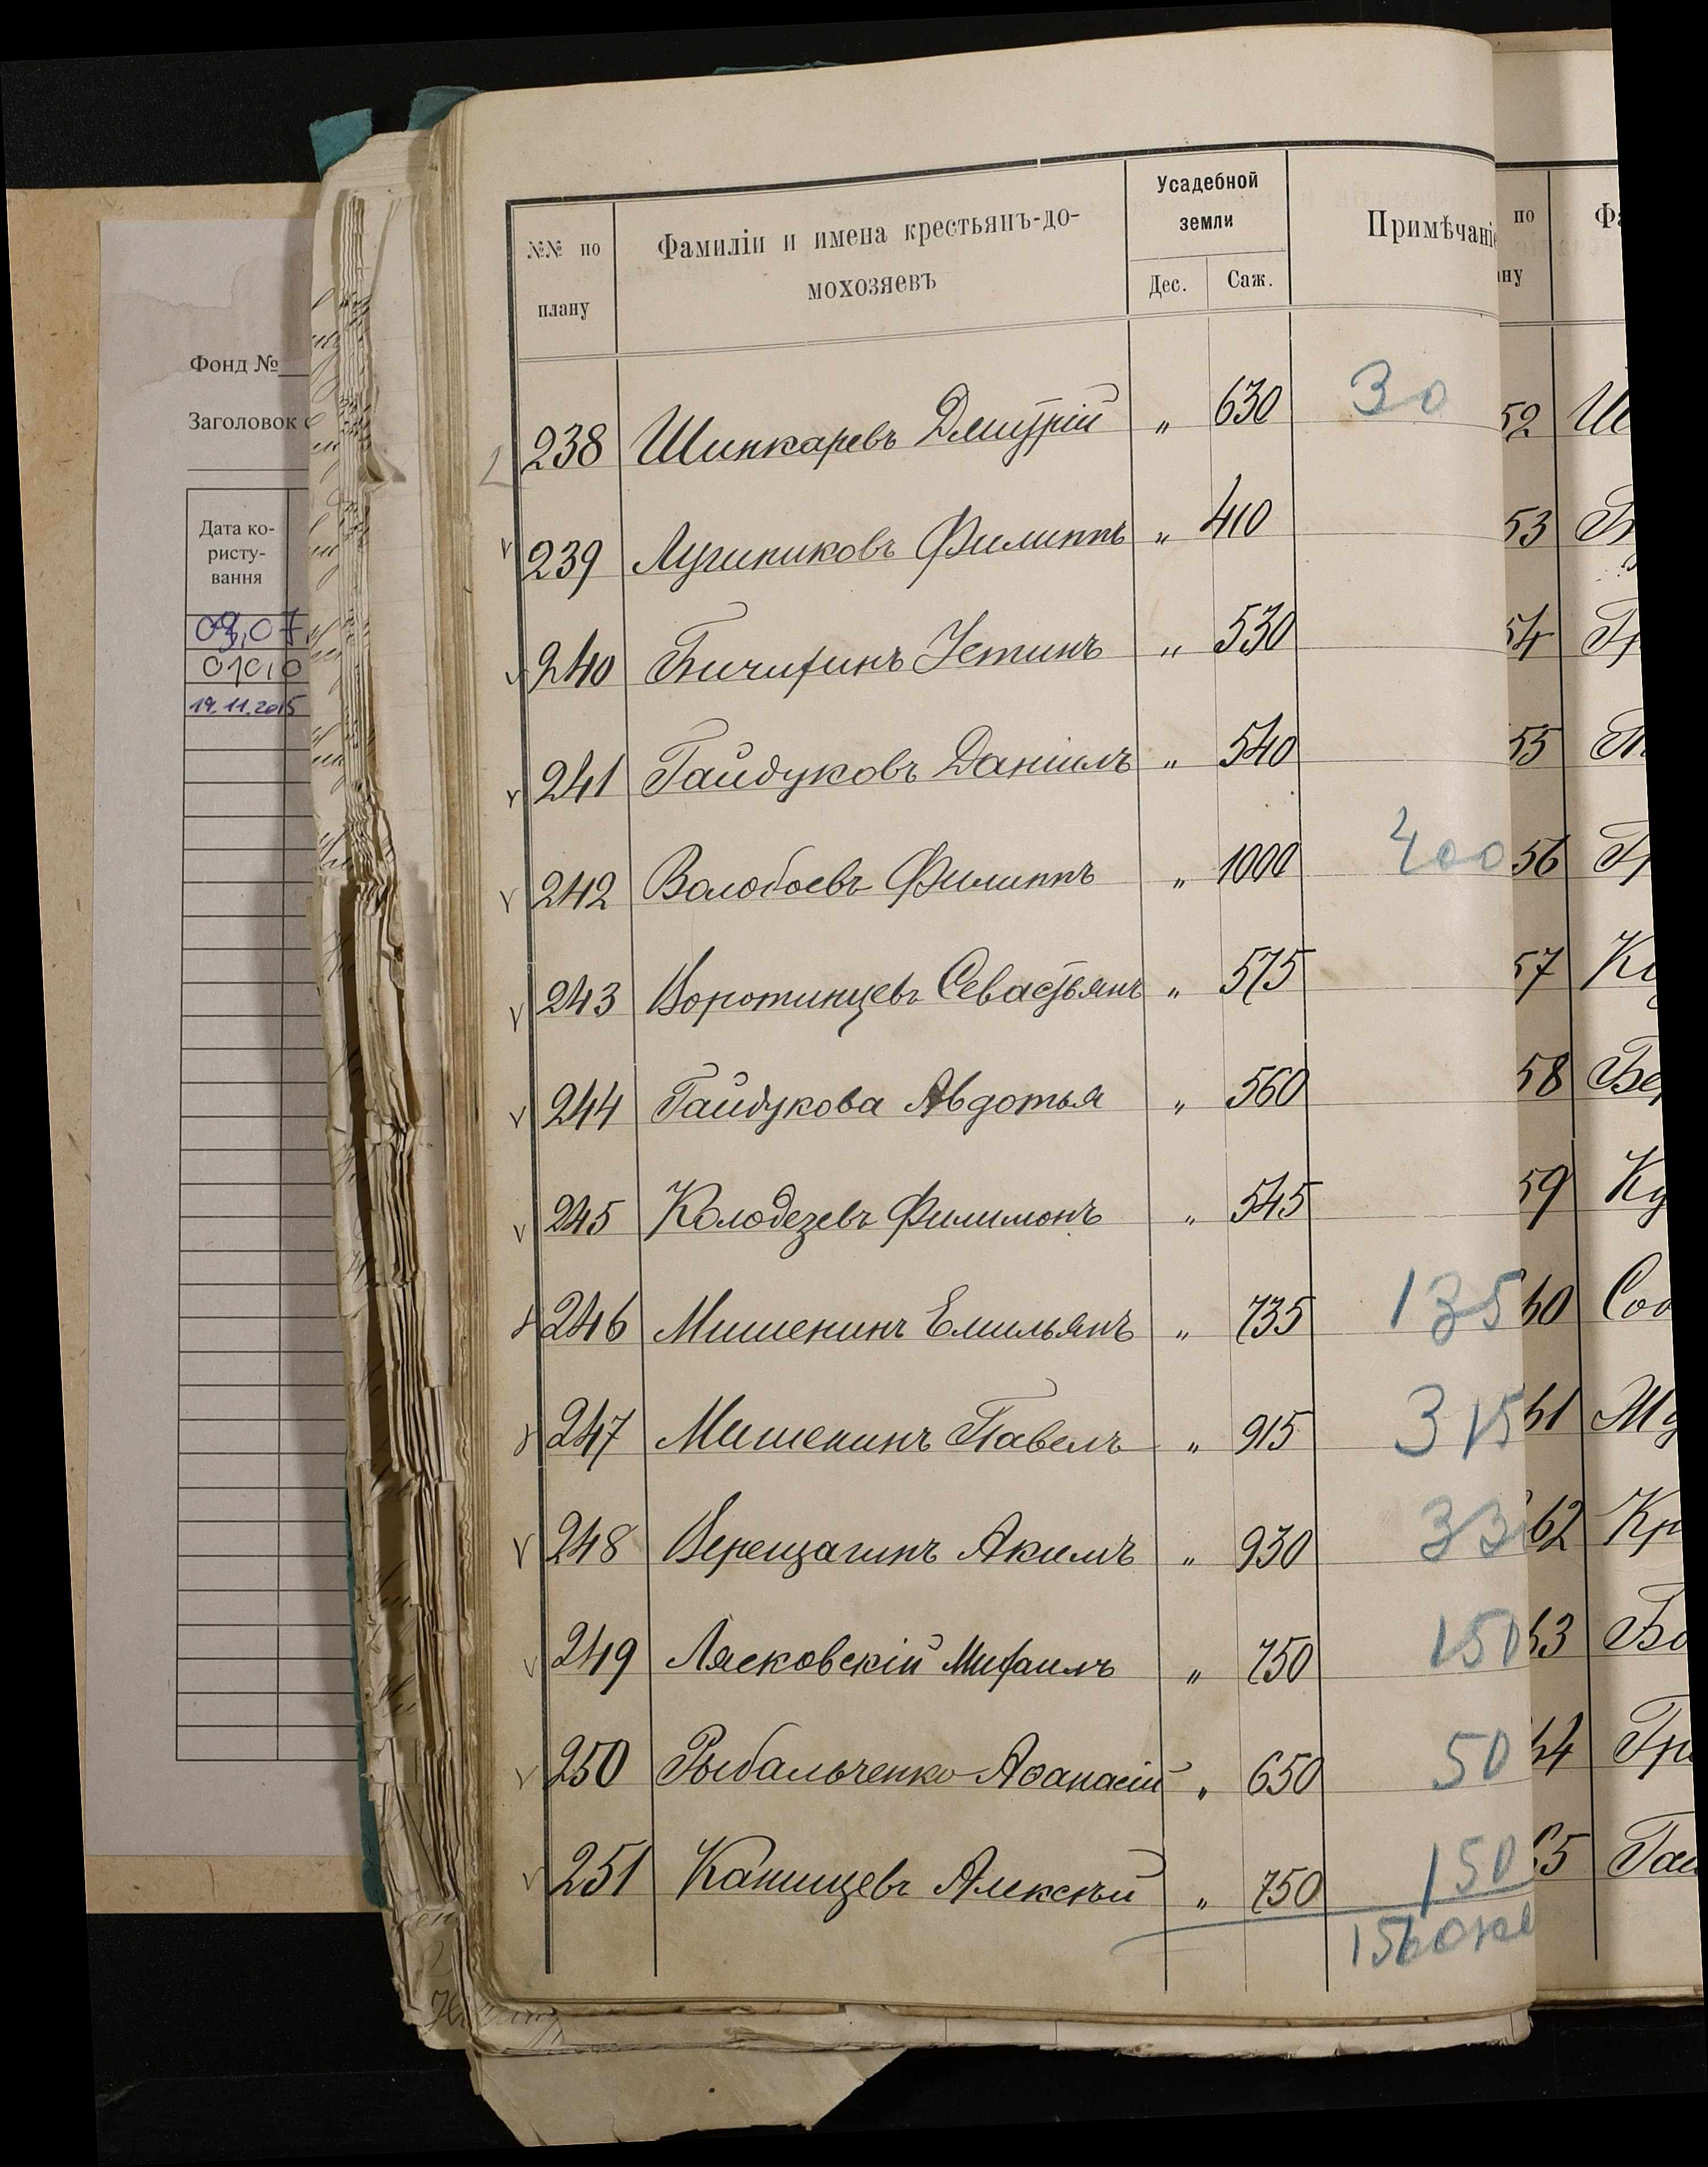 Усадебной
земли
№№ по
плану
Фамиліи и имена крестьянъ-до-
мохозяевъ
Дес. Саж.
Примѣчаніе
238 Шинкаревъ Дмитрій „ 630 30
239 Лучниковъ Филиппъ „ 410
240 Бичихинъ Устинъ „ 530
241 Гайдуковъ Даніилъ „ 540
242 Волобоевъ Филиппъ „ 1000 400
243 Воротинцевъ Севастьянъ „ 575
244 Гайдукова Авдотья „ 560
245 Колодезевъ Филимонъ „ 545
246 Мишенинъ Емильянъ „ 735 135
247 Мишенинъ Павелъ „ 915 315
248 Верещагинъ Акимъ „ 930 33
249 Лясковскій Михаилъ „ 750 150
250 Рыбальченко Аѳанасій „ 650 50
251 Канищевъ Алексѣй „ 750 150
1560
по
ну
Фа
52 Ш
53
54 Гр
55
56 Гр
57
58 Бе
59 Ку
60 Соо
61
62 Кр
63 Бо
64 Гри
65 Гай
Фонд №
Заголовок с
Дата ко-
ристу-
вання
09.07.
01.10
19.11.2015